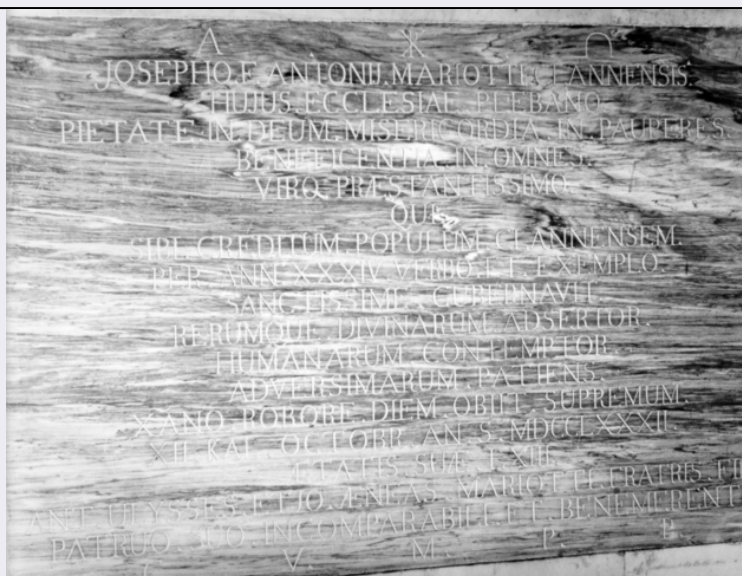 A ☧ Ω
JOSEPHO. F. ANTONII. MARIOTTI. CLANNENSIS.
HUJUS. ECCLESIAE. PLEBANO
PIETATE. IN. DEUM. MISERICORDIA. IN. PAUPERES.
BENEFICENTIA. IN. OMNES.
VIRO. PRÆSTANTISSIMO.
QUI.
SIBI. CREDITUM. POPULUM. CLANNENSEM.
PER. ANN. XXXIV. VERBO. ET. EXEMPLO.
SANCTISSIME. GUBERNAVIT.
RERUMQUE. DIVINARUM. ADSERTOR.
HUMANARUM. CONTEMPTOR.
ADVERSIMARUM. PATIENS.
ROBORE. DIEM. OBIIT. SUPREMUM.
XII. KAL. OCTOBR. AN. S. MDCCLXXXII.
ÆTATIS. SUÆ. LXIII.
ANT. ULYSSES. ET. JO. ÆNEAS. MARIOTTI. FRATRIS. FI
PATRUO. SUO. INCOMPARABILI. ET. BENEMERENT
V. M. P. P.